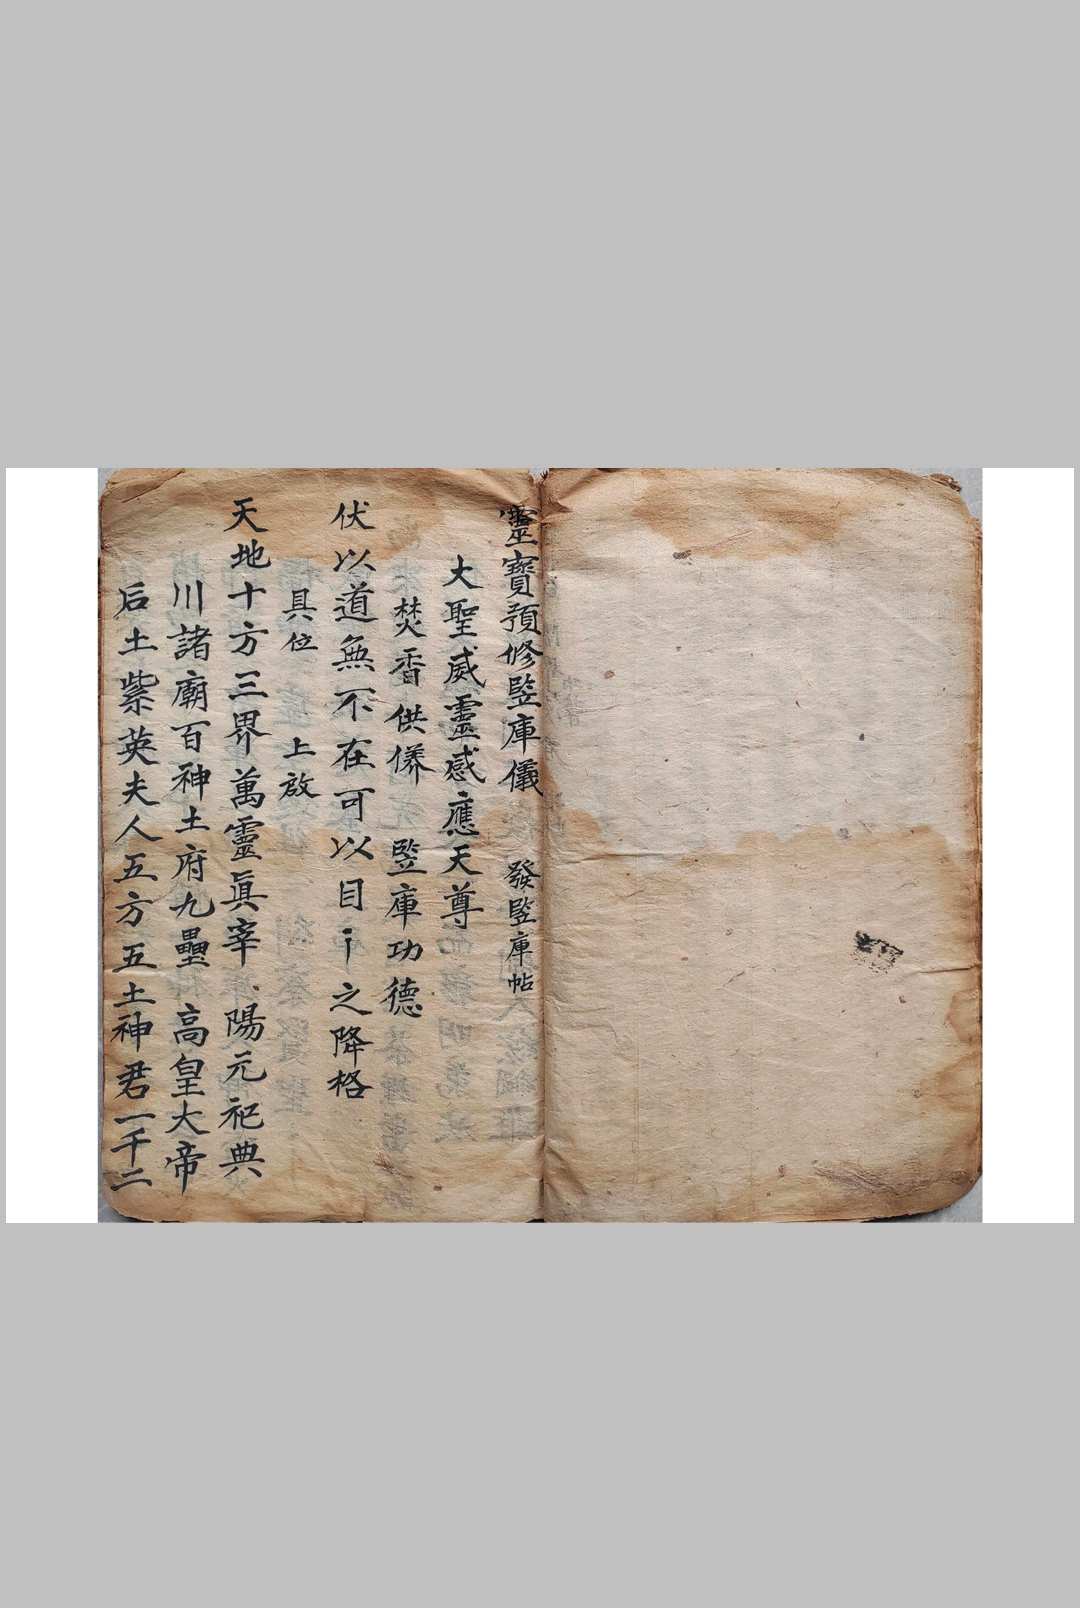 靈寶預修監庫儀 發監庫帖
大聖威靈感應天尊
焚香供養 監庫功德
伏以道無不在可以目之降格
具位 上啟
天地十方三界萬靈眞宰 陽元祀典
川諸廟百神土府九壘 高皇大帝
后土紫英夫人五方五土神君一千二